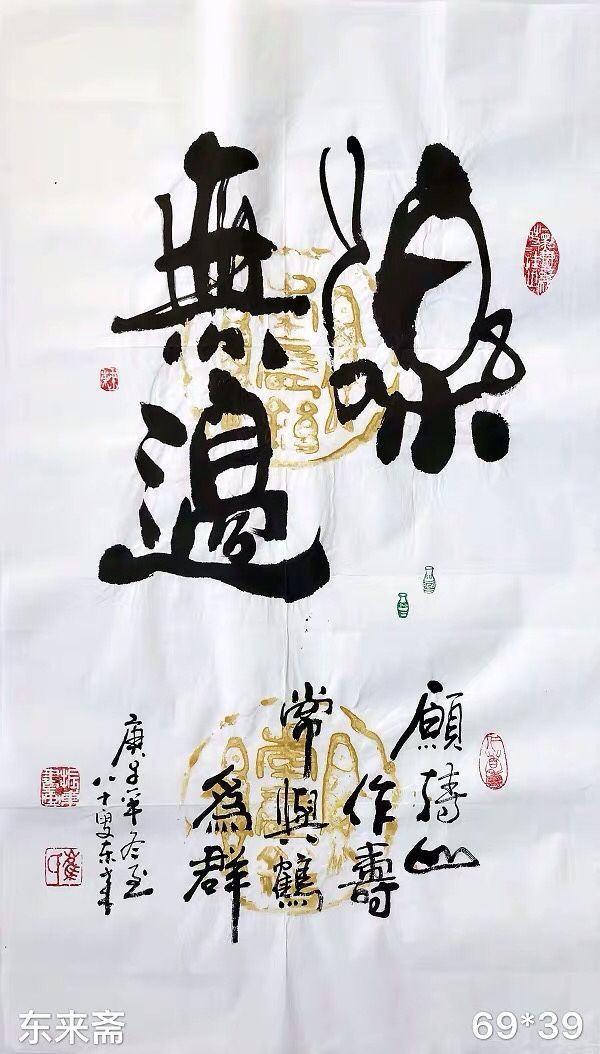 樂
無邊
願持山
作壽
常與鶴
爲群
庚子年冬至
八十叟东来
东来斋
69*39